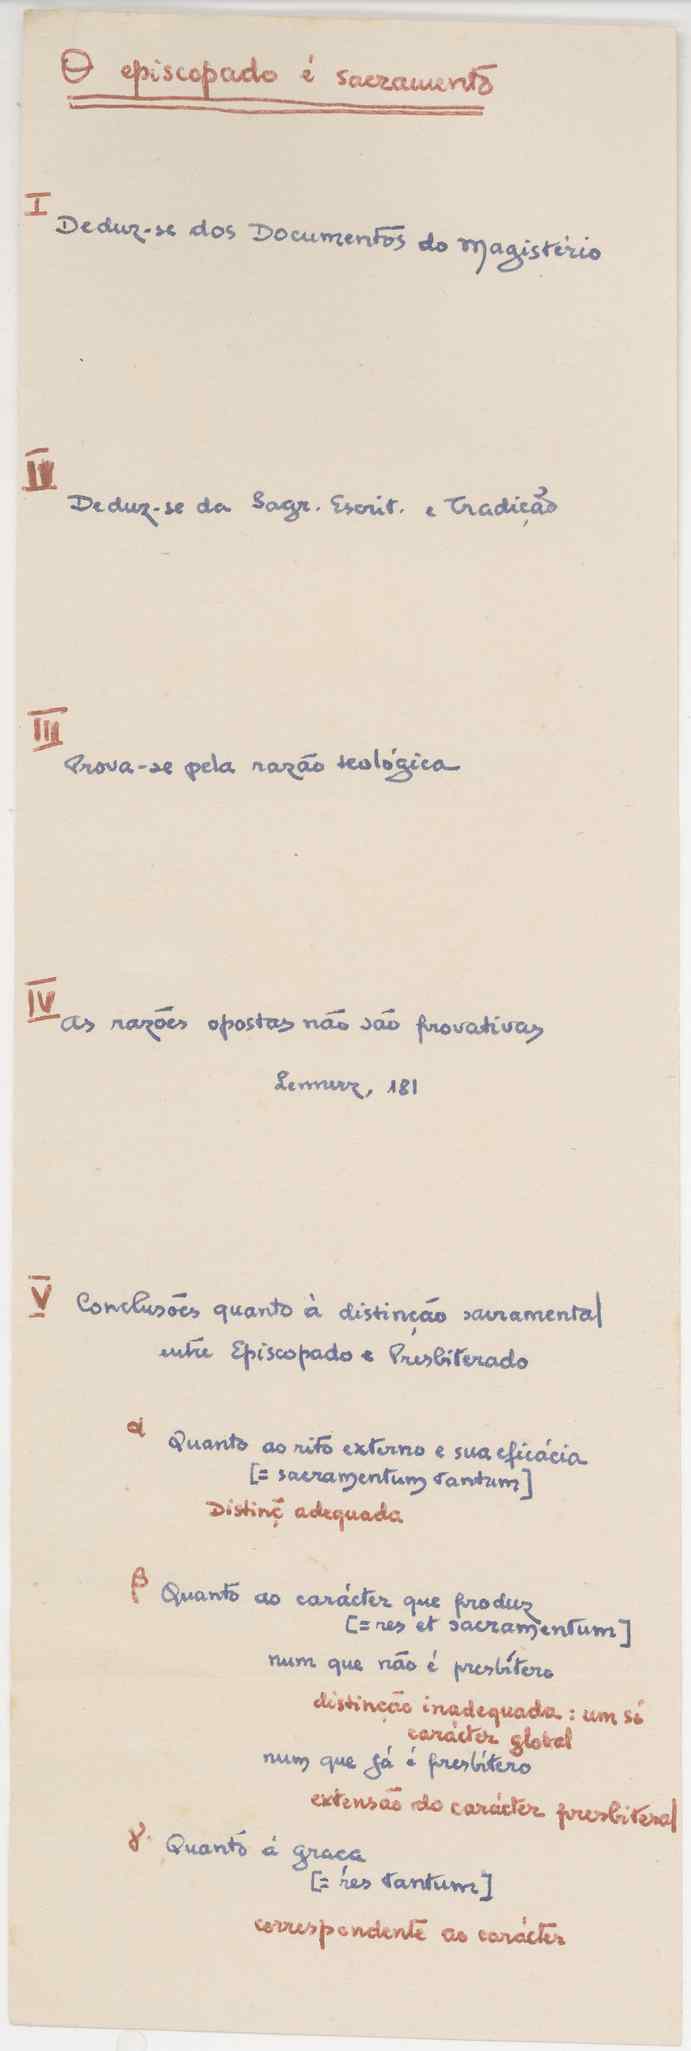 O episcopado é sacramento
I
Deduz-se dos Documentos do Magistério
II
Deduz-se da Sagr. Escrit. e Tradição
III
Prova-se pela razão teológica
IV
As razões opostas não são provativas
Lennerz, 181
V
Conclusões quanto à distinção sacramental
entre Episcopado e Presbiterado
α
Quanto ao rito externo e sua eficácia
[= sacramentum tantum]
Distinç adequada
β
Quanto ao carácter que produz
[= res et sacramentum]
num que não é presbítero
distinção inadequada : um só
carácter global
num que já é presbítero
extensão do carácter presbiteral
γ
Quanto à graça
[= res tantum]
correspondente ao carácter